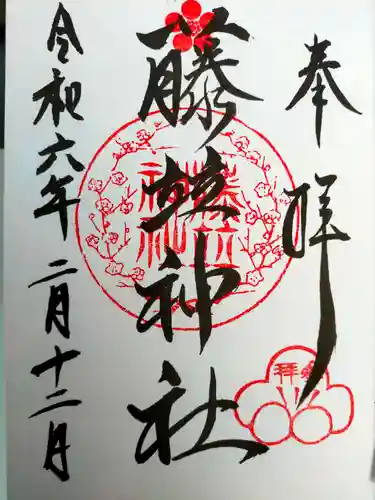 奉拝
藤竝神社
藤竝神社
令和六年二月十二日